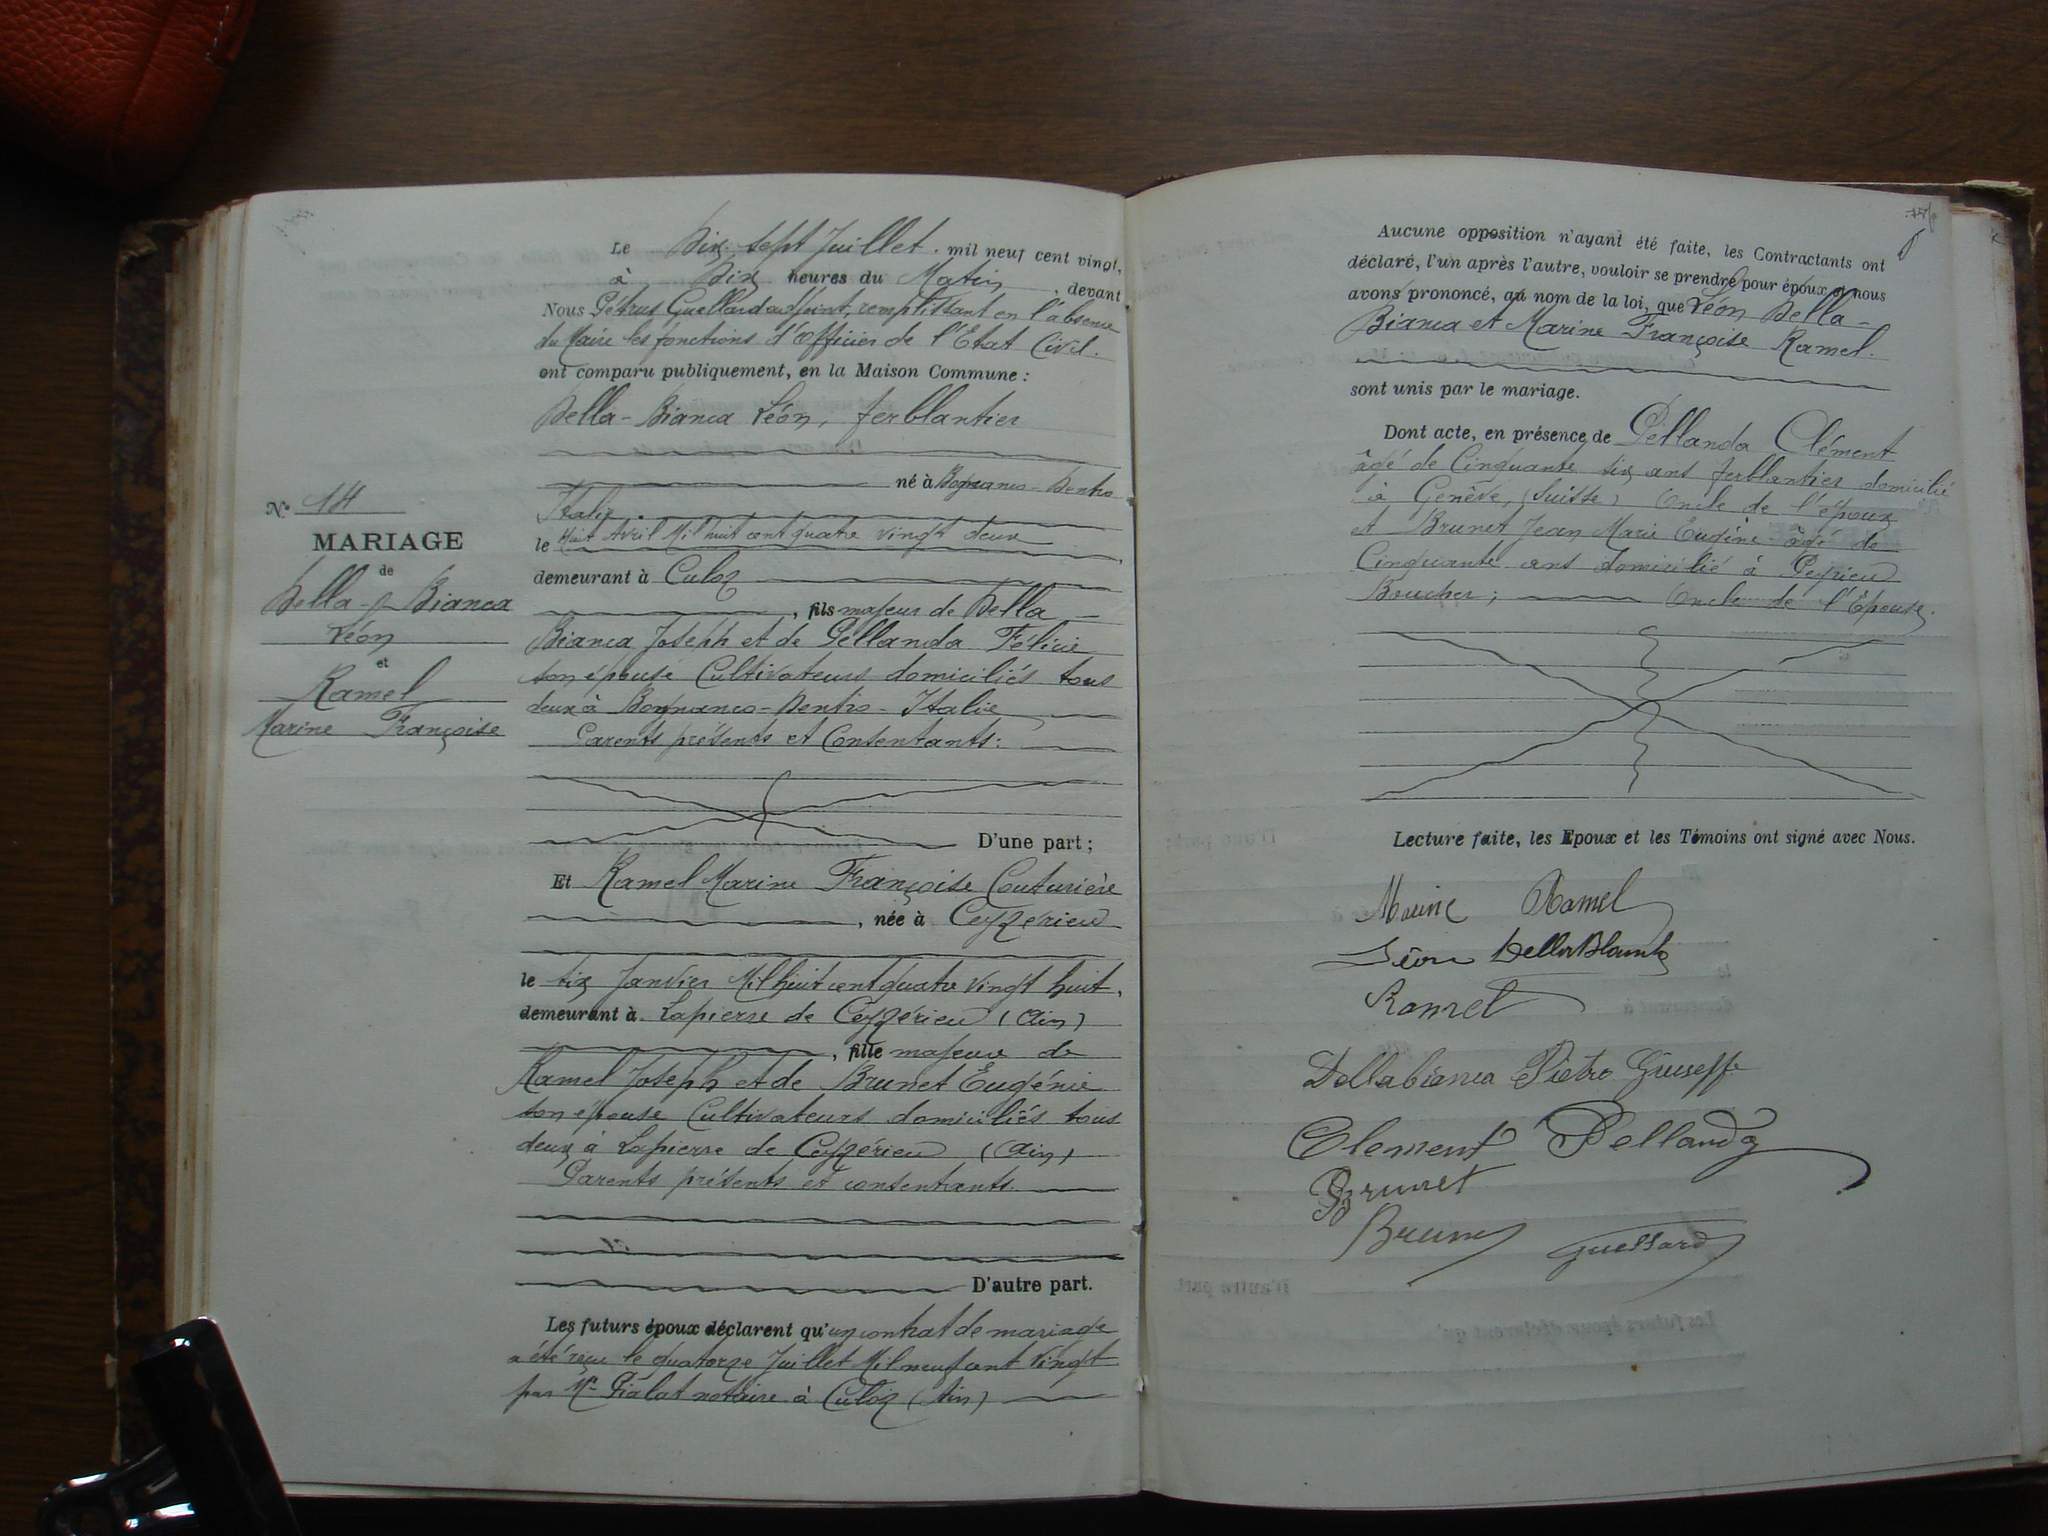 Le Dix sept Juillet. mil neuf cent vingt,
à Dix heures du Matin, devant
Nous Pétrus Guettard adjoint, remplissant en l'absence
du Maire les fonctions d'Officier de l'Etat Civil.
ont comparu publiquement, en la Maison Commune :
Della-Bianca Léon, ferblantier
né à Bognanco-Dentro
Italie
le Huit Avril Mil huit cent quatre vingt deux
demeurant à Culoz
, fils majeur de Della-
Bianca Joseph et de Pellanda Félicie
son épouse Cultivateurs domiciliés tous
deux à Bognanco-Dentro-Italie
Parents présents et Consentants:
D'une part ;
N° 14
MARIAGE
de
Della-Bianca
Léon
et
Ramel
Marine Françoise
Et Ramel Marine Françoise Couturière
, née à Ceyzérieu
le six Janvier Mil huit cent quatre vingt huit,
demeurant à Lapierre de Ceyzérieu (Ain)
, fille majeure de
Ramel Joseph et de Brunet Eugénie
son épouse Cultivateurs domiciliés tous
deux à Lapierre de Ceyzérieu (Ain)
Parents présents et consentants.
D'autre part.
Les futurs époux déclarent qu'un contrat de mariage
a été reçu le quatorze Juillet Mil neuf cent Vingt
par Me Pialat notaire à Culoz (Ain)
Aucune opposition n'ayant été faite, les Contractants ont
déclaré, l'un après l'autre, vouloir se prendre pour époux et nous
avons prononcé, au nom de la loi, que Léon Della-
Bianca et Marine Françoise Ramel.
sont unis par le mariage.
Dont acte, en présence de Pellanda Clément
âgé de Cinquante six ans ferblantier domicilié
à Genève, (Suisse) Oncle de l'époux
et Brunet Jean Marie Eugène âgé de
Cinquante ans domicilié à Peyrieu
Boucher; Oncle de l'Epouse.
Lecture faite, les Epoux et les Témoins ont signé avec Nous.
Marine Ramel
Léon DellaBianca
Ramel
Dellabianca Pietro Giuseppe
Clement Pellanda
Brunet
Brunet Guettard